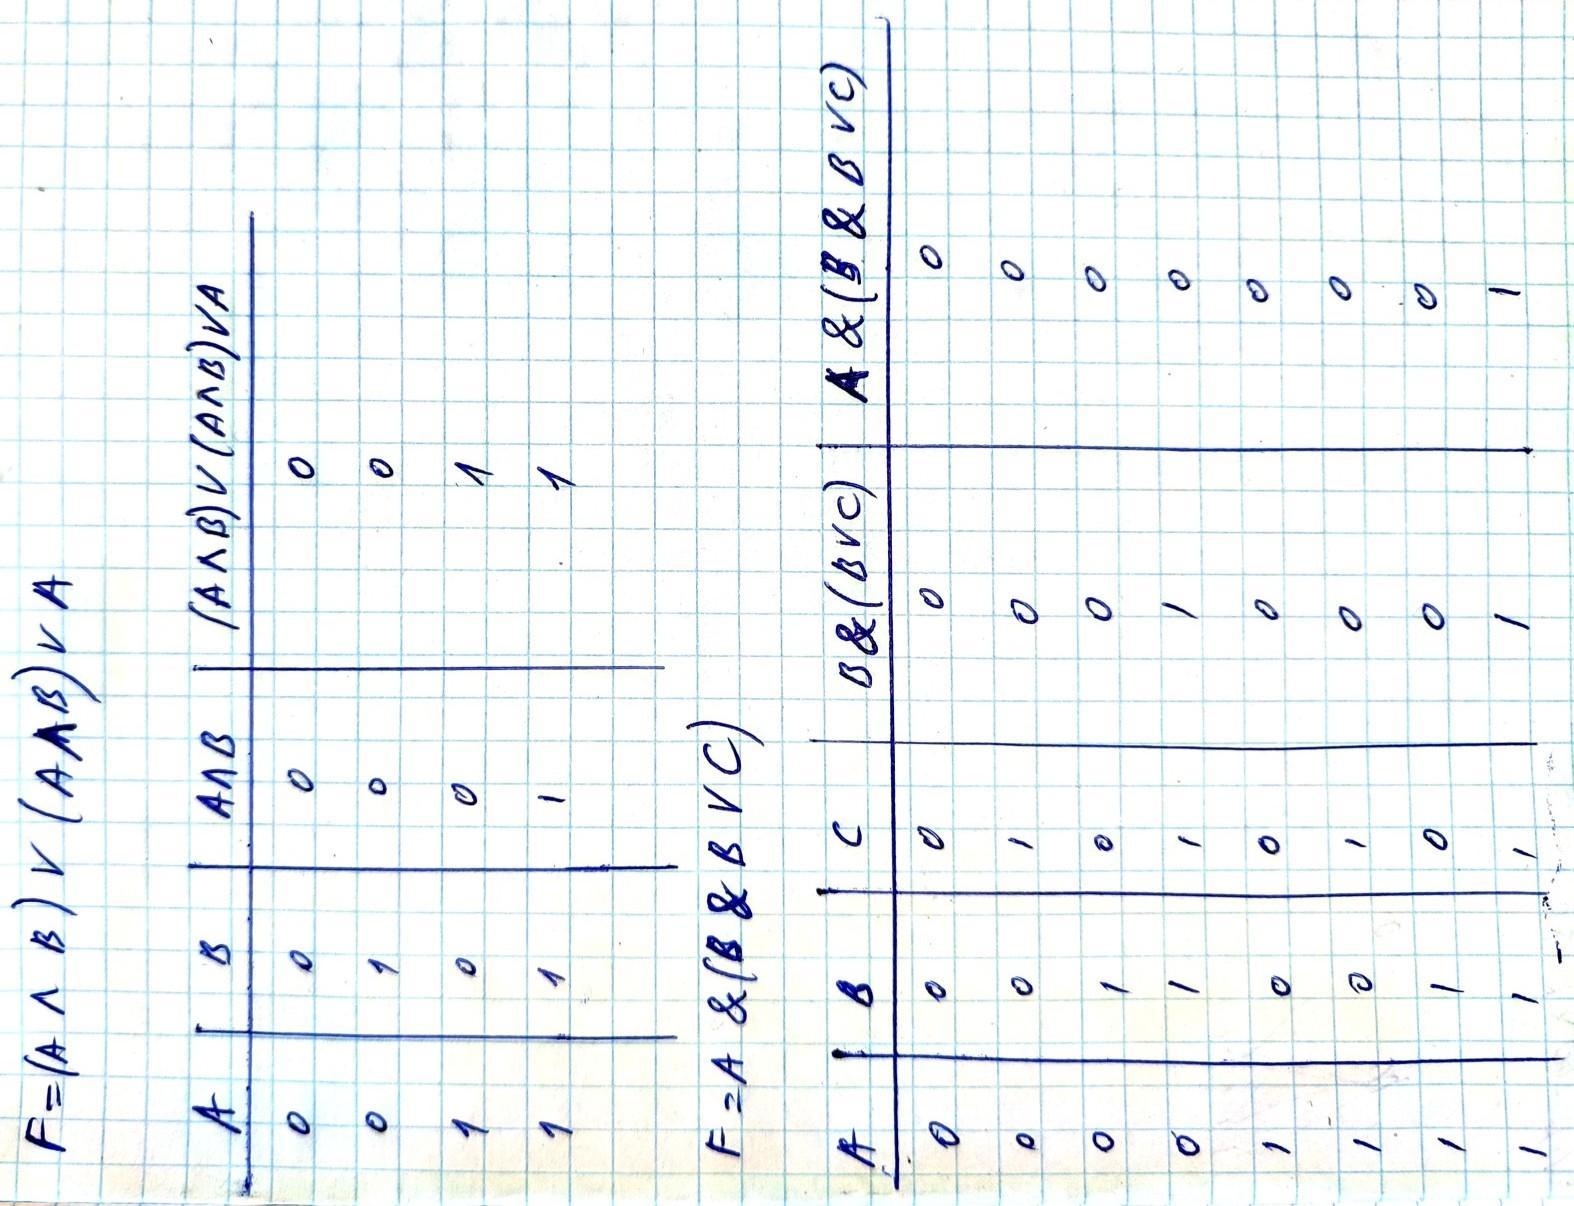 F=(A∧B)∨(A∧B)∨A
A B A∧B (A∧B)∨(A∧B)∨A
0 0 0 0
0 1 0 0
1 0 0 1
1 1 1 1
F=A&(B&B∨C)
A B C B&(B∨C) A&(B&B∨C)
0 0 0 0 0
0 0 1 0 0
0 1 0 0 0
0 1 1 1 0
1 0 0 0 0
1 0 1 0 0
1 1 0 0 0
1 1 1 1 1